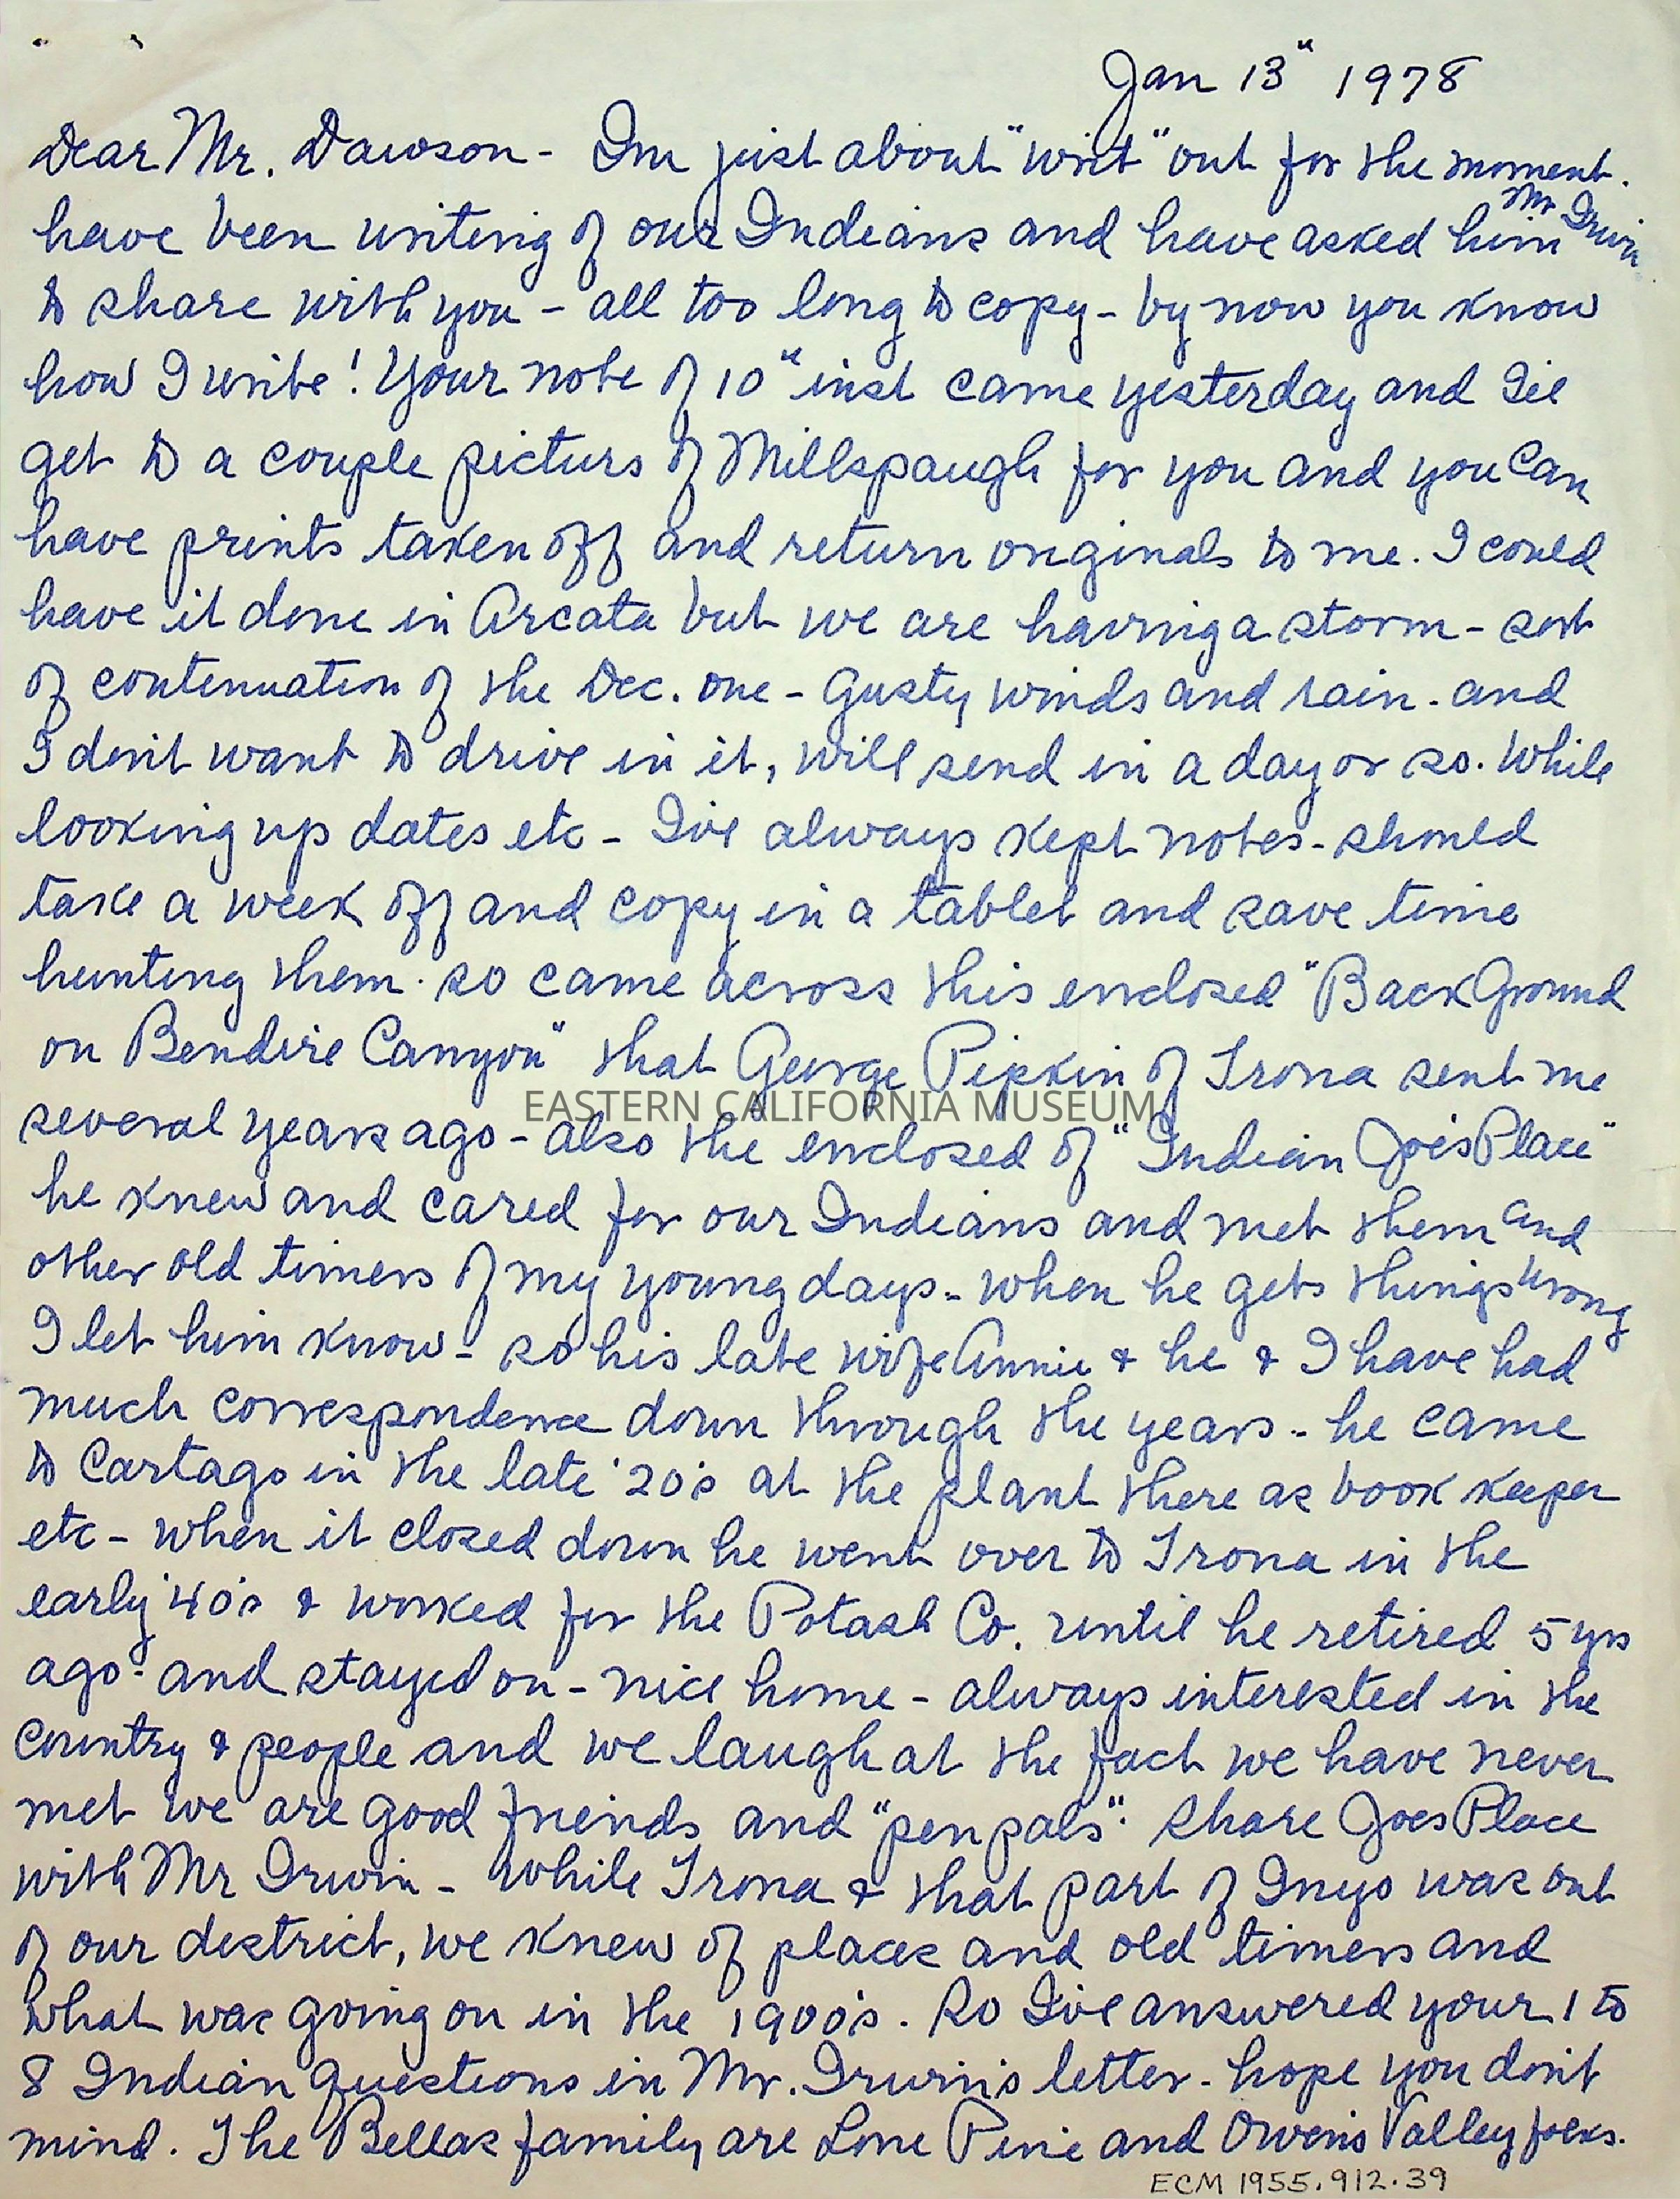 Jan 13" 1978
Dear Mr. Dawson - Im just about "writ" out for the moment.
have been writing of our Indians and have asked him Mr Irwin
to share with you - all too long to copy - by now you know
how I write! Your note of 10" inst came yesterday and I'll
get to a couple picturs of Millspaugh for you and you can
have prints taken off and return originals to me. I could
have it done in Arcata but we are having a storm - sort
of contenuation of the Dec. one - Gusty winds and rain. and
I don't want to drive in it, will send in a day or so. While
looking up dates etc - I've always kept notes - should
take a week off and copy in a tablet and save time
hunting them. so came across this enclosed "Back Ground
on Bendire Canyon" that George Pipkin of Trona sent me
EASTERN CALIFORNIA MUSEUM
several years ago - also the enclosed of "Indian Joe's Place"
he knew and cared for our Indians and met them and
other old timers of my young days - when he gets things wrong
I let him know - so his late wife Annie & he & I have had
much correspondence down through the years - he came
to Cartago in the late '20's at the plant there as book keeper
etc - when it closed down he went over to Trona in the
early '40's & worked for the Potash Co. until he retired 5 yrs
ago - and stayed on - nice home - always interested in the
country & people and we laugh at the fact we have never
met we are good friends and "pen pals". Share Joes Place
with Mr Irwin - While Trona & that part of Inyo was out
of our district, we knew of places and old timers and
what was going on in the 1900's. So I've answered your 1 to
8 Indian questions in Mr. Irwin's letter - hope you don't
mind. The Bellas family are Lone Pine and Owens Valley folks.
ECM 1955.912.39